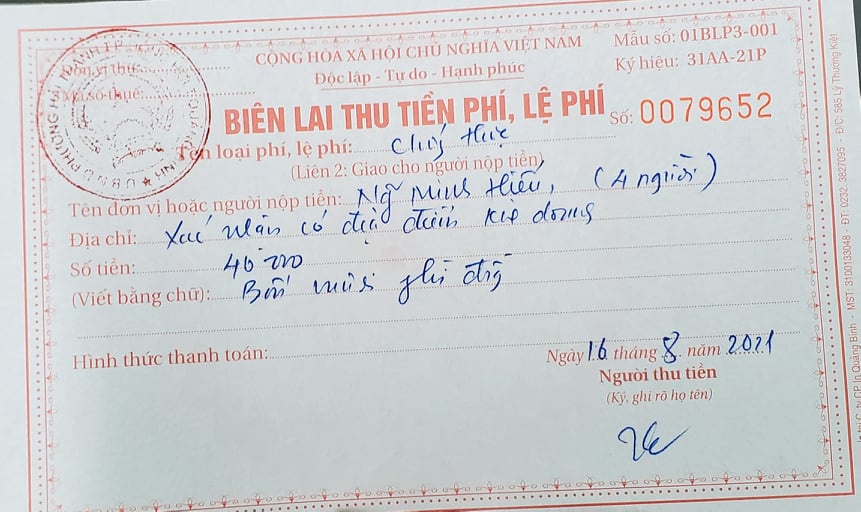 CỘNG HÒA XÃ HỘI CHỦ NGHĨA VIỆT NAM
Độc lập - Tự do - Hạnh phúc
Mẫu số: 01BLP3-001
Ký hiệu: 31AA-21P
Đơn vị thu:
Mã số thuế:
BIÊN LAI THU TIỀN PHÍ, LỆ PHÍ
Số: 0079652
Tên loại phí, lệ phí: Chứng thực
(Liên 2: Giao cho người nộp tiền)
Tên đơn vị hoặc người nộp tiền: Ng Minh Hiếu, (4 người)
Địa chỉ: Xác nhận có
Số tiền: 40 000
(Viết bằng chữ): Bốn mươi
Hình thức thanh toán:
Ngày 16 tháng 8 năm 2021
Người thu tiền
(Ký, ghi rõ họ tên)
In tại C.ty CP In Quảng Bình - MST: 3100133048 - ĐT: 0232. 3827095 - Đ/C: 385 Lý Thường Kiệt